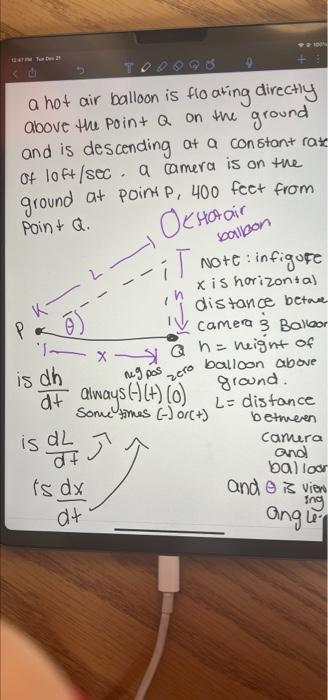 12:47 PM Tue Dec 21
100%
a hot air balloon is floating directly
above the point Q on the ground
and is descending at a constant rate
of 10ft/sec. a camera is on the
ground at point P, 400 feet from
point Q.
Hot air
balloon
L
Note: in figure
x is horizontal
h
distance betwe
P
θ
camera & Balloon
x
Q
h = height of
balloon above
ground.
neg pos zero
is dh/dt always (-) (+) (0)
sometimes (-) or (+)
L = distance
between
camera
and
balloon
is dL/dt
is dx/dt
and θ is view
ing
angle.